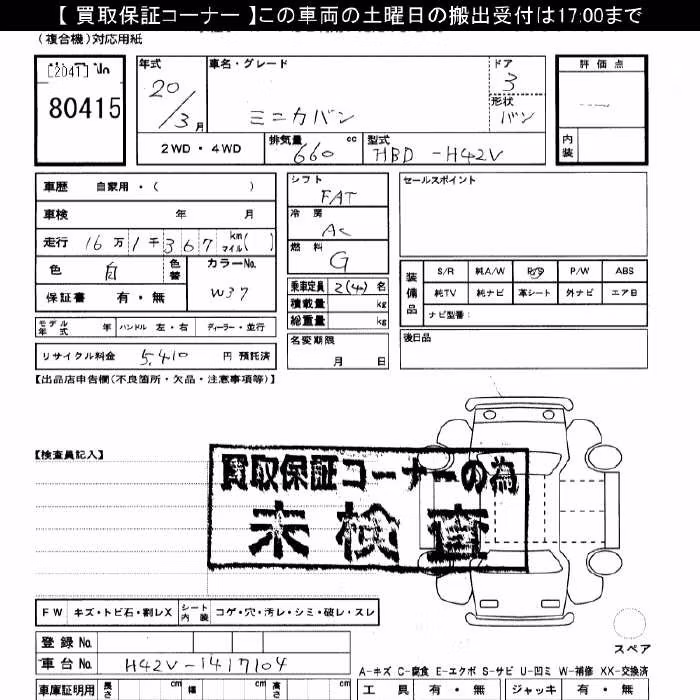 【 買取保証コーナー 】この車両の土曜日の搬出受付は17:00まで
(複合機)対応用紙
80415
年式 20/3月
車名・グレード ミニカバン
ドア 3
形状 バン
評価点
内装
2WD・4WD
排気量 660 cc
型式 HBD-H42V
車歴 自家用・( )
車検 年 月
走行 16万1千367 km マイル( )
色 白 色替 カラーNo. W37
保証書 有・無
モデル年式 年 ハンドル 左・右 ディーラー・並行
リサイクル料金 5,410 円 預託済
シフト FAT
冷房 AC
燃料 G
乗車定員 2(4)名
積載量 kg
総重量 kg
名変期限 月 日
セールスポイント
装備品 S/R 純A/W P/S P/W ABS
純TV 純ナビ 革シート 外ナビ エアB
ナビ型番:
後日品
【出品店申告欄(不良箇所・欠品・注意事項等)】
【検査員記入】
買取保証コーナーの為
未検査
FW キズ・トビ石・割レX シート内装 コゲ・穴・汚レ・シミ・破レ・スレ
スペア
登録No.
車台No. H42V-1417104
A-キズ C-腐食 E-エクボ S-サビ U-凹ミ W-補修 XX-交換済
車庫証明用 長さ cm 幅 cm 高さ cm
工具 有・無 ジャッキ 有・無